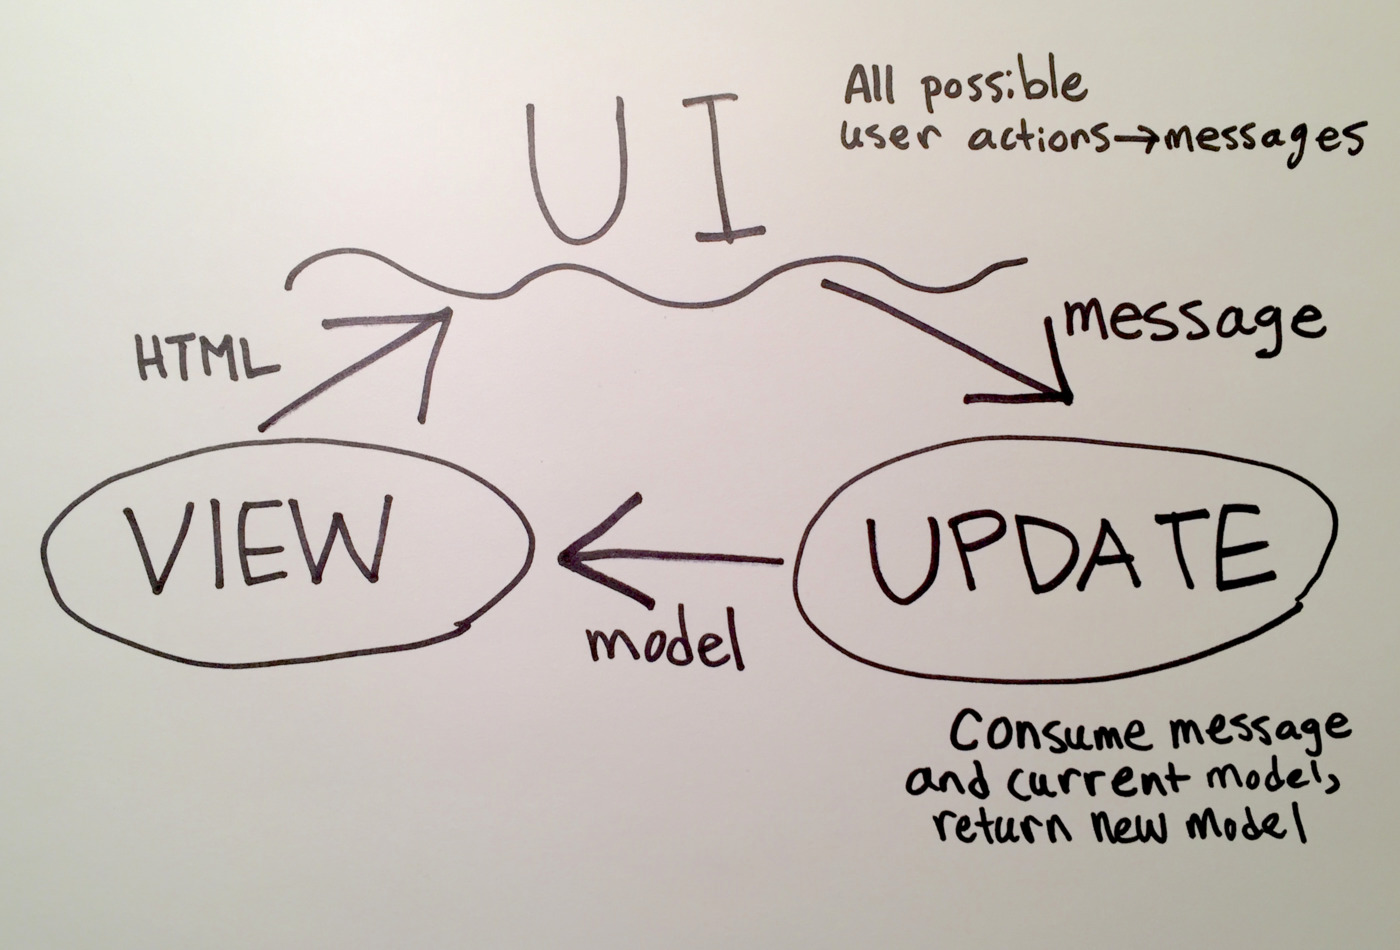 UI
All possible
user actions→messages
HTML
message
VIEW
UPDATE
model
Consume message
and current model,
return new model